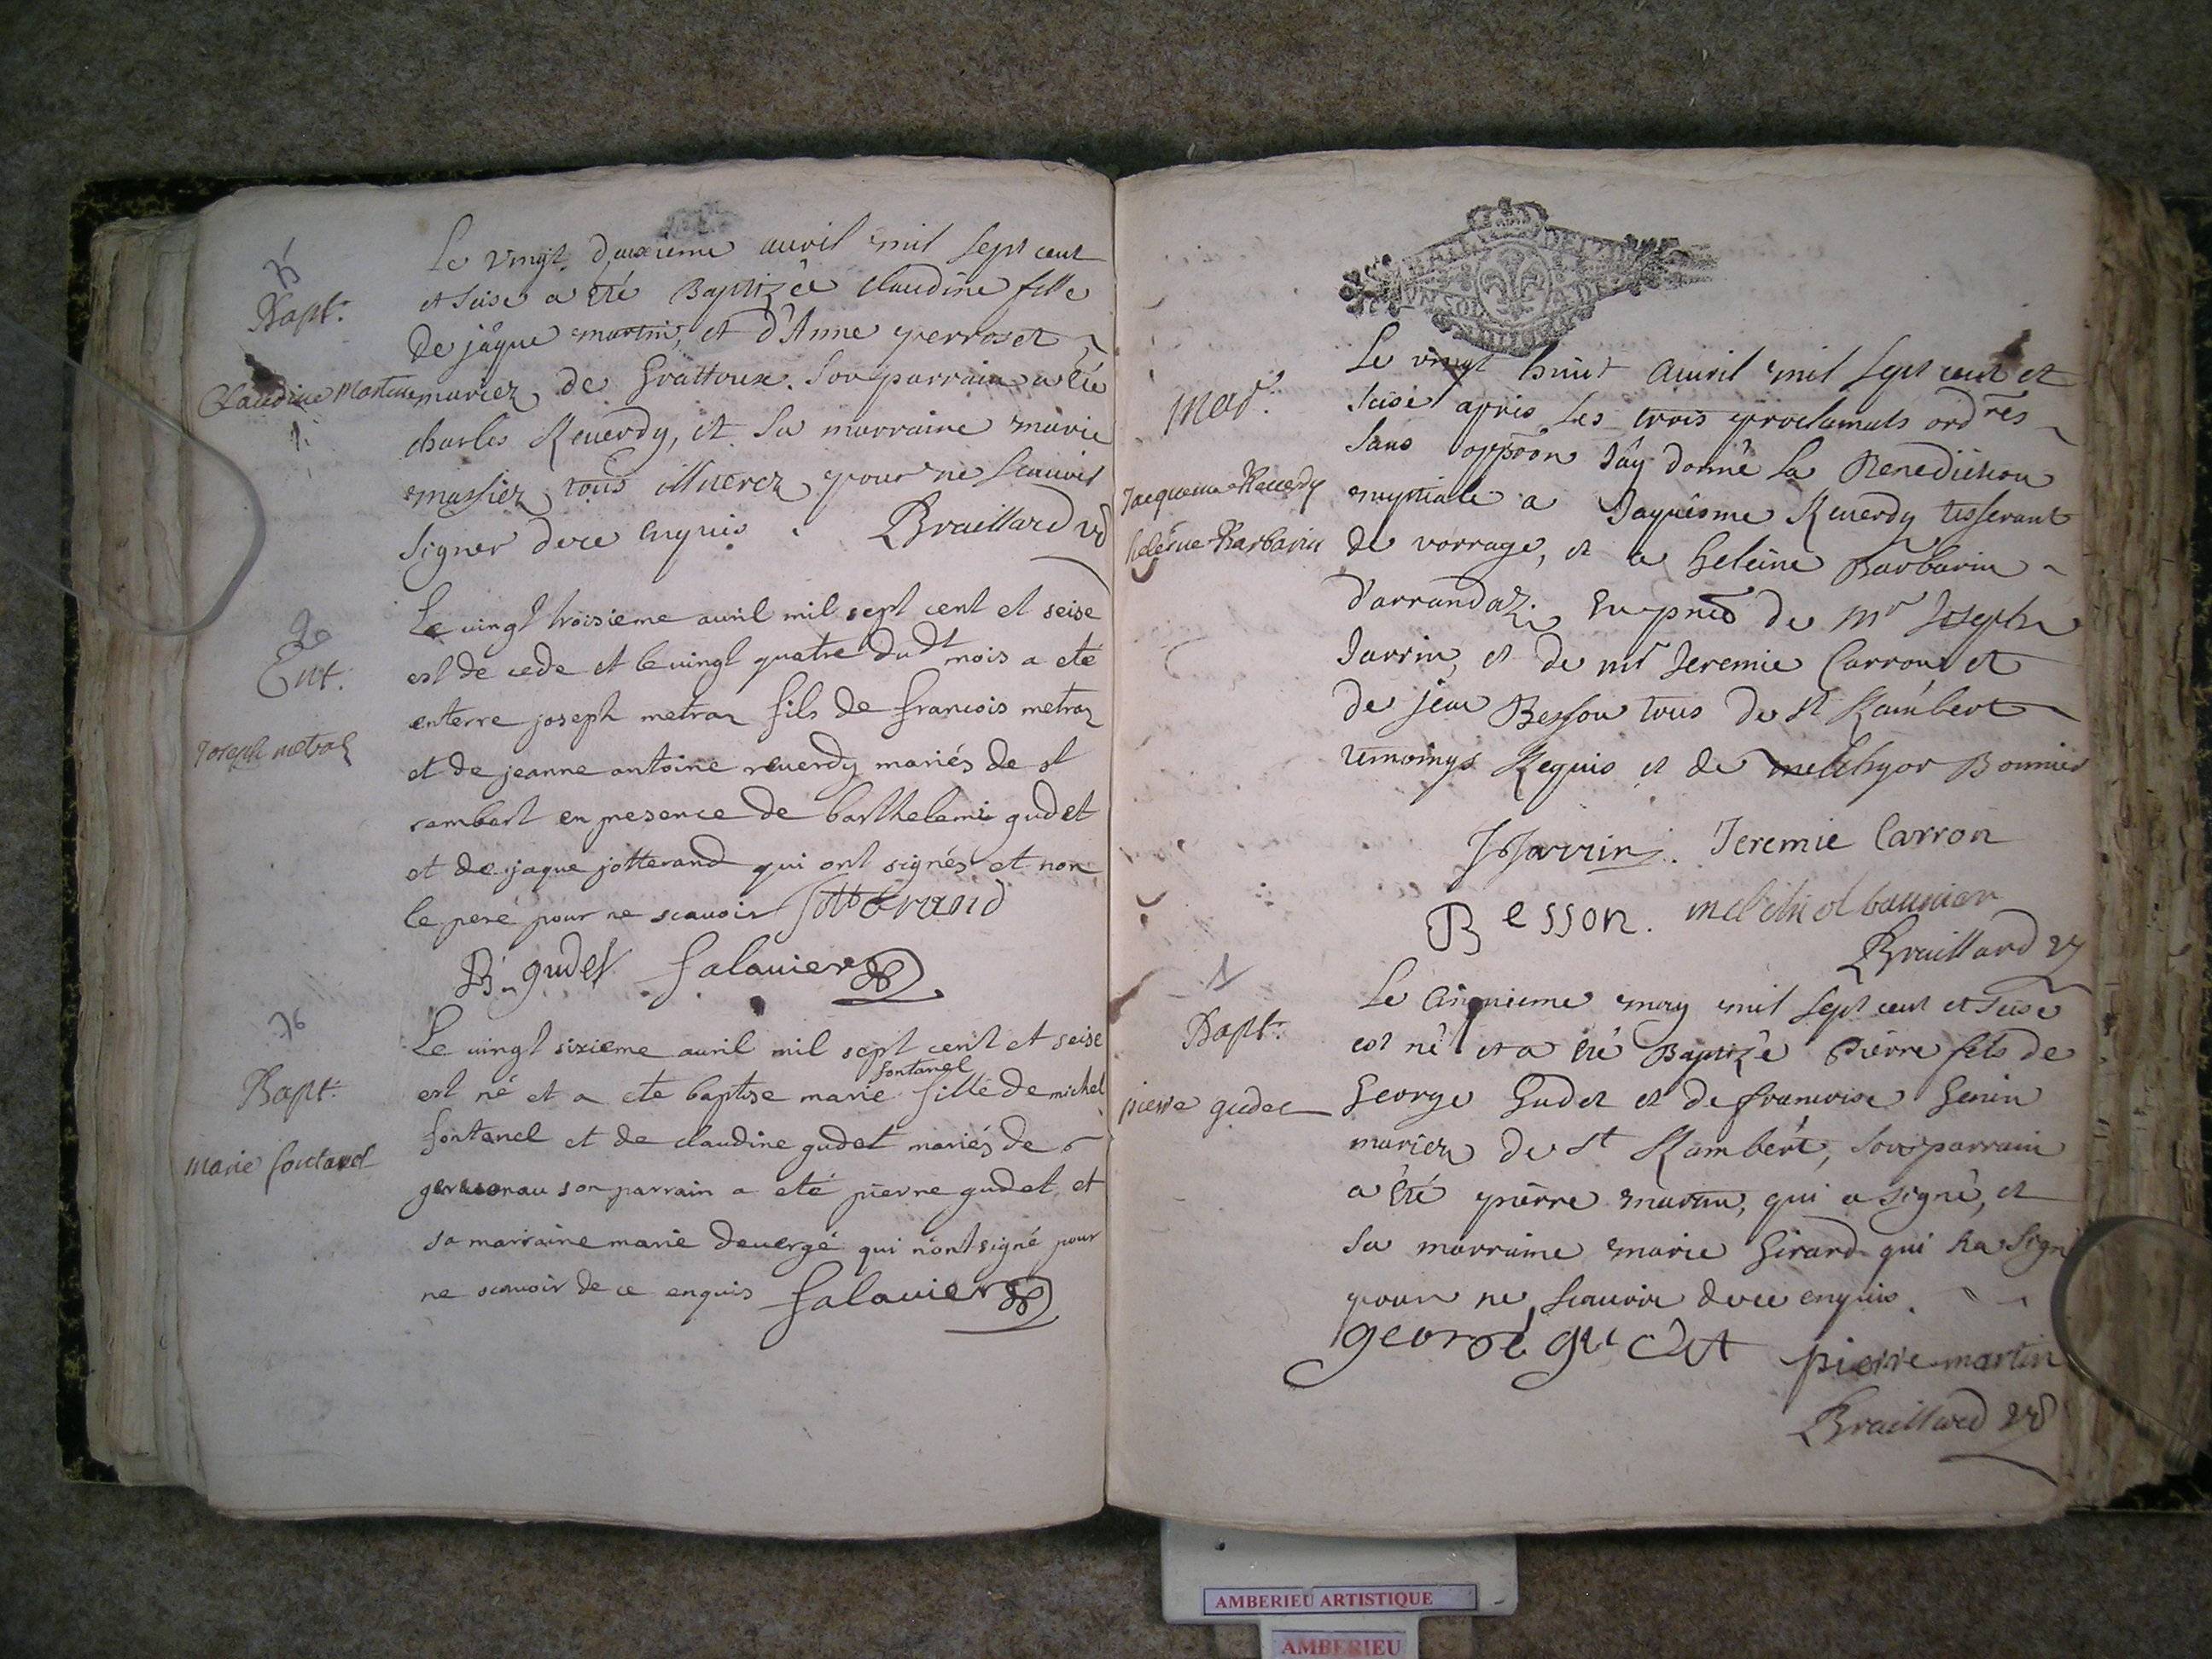 Bapt.
Claudine Martin
Le vingt deuxieme auril mil sept cent
et seise a eté Baptizée Claudine fille
de jâque martin, et d'Anne perroset
mariez de Grattoux. Son parrain a été
charles Reuerdy, et sa marraine marie
massiez tous illiterez pour ne scauoir
signer dece enquis. Braillard
Ent.
Joseph metral
Le uingt troisieme auril mil sept cent et seise
est de cede et le uingt quatre dudt mois a eté
enterre joseph metraz fils de francois metraz
et de jeanne antoine reuerdy mariés de st
rambert en presence de barthelemi gudet
et de jaque jotterand qui ont signés et non
le pere pour ne scauoir Jotterand
B. gudet falauier
76
Bapt.
marie fontanel
Le uingt sixieme auril mil sept cent et seise
fontanel
est né et a ete baptise marie fille de michel
fontanel et de claudine gudet mariés de
son parrain a eté pierre gudet et
sa marraine marie deuergé qui n'ont signé pour
ne scauoir de ce enquis falauier
Mar.
Jacquema Reuerdy
helesne Barbarin
Le vingt huit auuril mil sept cent et
seise apres les trois proclamats ordres
sans oppõon j'ay donné la Benediction
nuptiale a Jaquême Reuerdy tisserant
de vorrage, et a heleine Barbarin
d'arrandaz. En pñce de Mr Joseph
Jarrin, et de mr Jeremie Carron, et
de jean Besson tous de st Rambert
temoings Requis et de melchyor Bonnier
JJarrin. Jeremie Carron
Besson.
Braillard
Bapt.
pierre gudet
Le Cinquieme may mil sept cent et seise
est né et a été Baptizé Pierre fils de
George Gudet et de francoise Genin
mariez de st Rambert, son parrain
a été pierre martin, qui a signé, et
sa marraine marie Girard qui na signé
pour ne scauoir dece enquis.
george gudet pierre martin
Braillard
AMBERIEU ARTISTIQUE
AMBERIEU